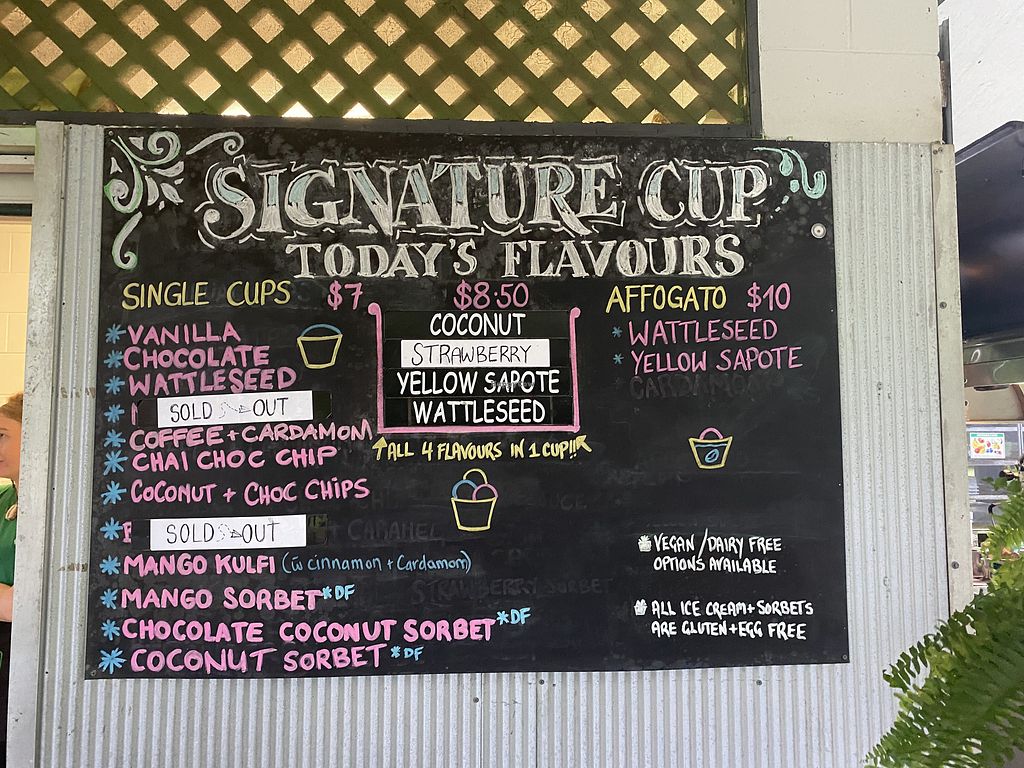 SIGNATURE CUP
TODAY'S FLAVOURS
SINGLE CUPS $7
*VANILLA
*CHOCOLATE
*WATTLESEED
* SOLD OUT
*COFFEE + CARDAMOM
*CHAI CHOC CHIP
*COCONUT + CHOC CHIPS
* SOLD OUT
*MANGO KULFI (w cinnamon + Cardamom)
*MANGO SORBET *DF
*CHOCOLATE COCONUT SORBET *DF
*COCONUT SORBET *DF
$8.50
COCONUT
STRAWBERRY
YELLOW SAPOTE
WATTLESEED
ALL 4 FLAVOURS IN 1 CUP!!
AFFOGATO $10
*WATTLESEED
*YELLOW SAPOTE
CARDAMOM
CARAMEL
STRAWBERRY SORBET
VEGAN / DAIRY FREE
OPTIONS AVAILABLE
ALL ICE CREAM + SORBETS
ARE GLUTEN + EGG FREE